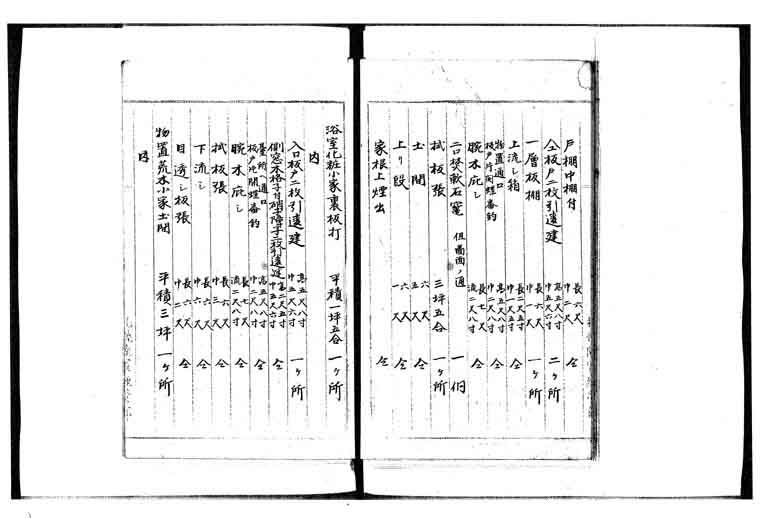 戸棚中棚付 長六尺 巾二尺 仝
仝板戸二枚引違建 高五尺八寸 巾五尺六寸 二ヶ所
一層板棚 長六尺 巾一尺 一ヶ所
上流し箱 長二尺五寸 巾一尺五寸 仝
物置通口 板戸片開蝶番釣 高五尺八寸 巾二尺八寸 仝
腕木庇し 長七尺 流二尺八寸 仝
二口焚軟石竈 但圖面ノ通 一個
拭板張 三坪五合 一ヶ所
土間 六尺 五尺 仝
上り段 六尺 一尺 仝
家根上煙出 仝
浴室化粧小家裏板打 平積一坪五合 一ヶ所
内
入口板戸二枚引違建 高五尺八寸 巾五尺六寸 一ヶ所
側窓本格子付硝子障子二枚引違建 高二尺五寸 巾五尺六寸 仝
臺所ヘ通口 板戸片開蝶番釣 高五尺八寸 巾二尺八寸 仝
腕木庇し 長七尺 流二尺八寸 仝
拭板張 長六尺 巾三尺 仝
下流し 長六尺 巾六尺 仝
目透シ板張 長六尺 巾二尺 仝
物置荒木小家土間 平積三坪 一ヶ所
内